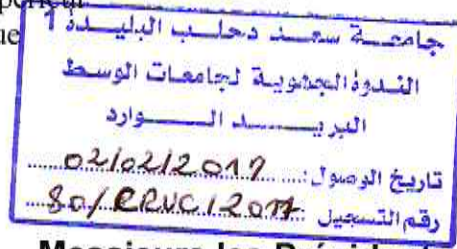 جامعة سعد دحلب البليدة 1
الندوة الجهوية لجامعات الوسط
البريد الوارد
تاريخ الوصول: 02/02/2017
رقم التسجيل: 80/CRUC/2017